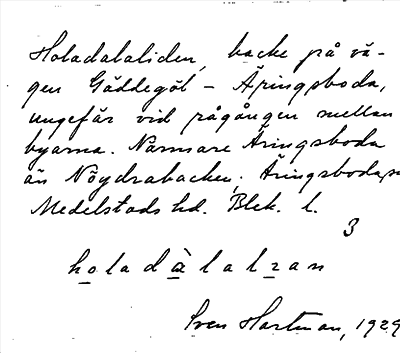 Holadalaliden, backe på vä-
gen Gäddegöl – Äringsboda,
ungefär vid rågången mellan
byarna. Närmare Äringsboda
än Nöydrabacken, Äringsboda,
Medelstads hd. Blek. l.
3
holadàlalɩan
Sven Hartman, 1929